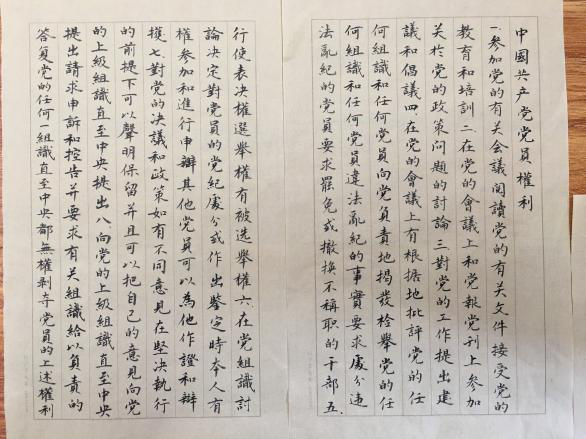 中國共产党党員權利
一.參加党的有关会議閱讀党的有关文件接受党的
教育和培訓二.在党的會議上和党報党刊上参加
关於党的政策问題的討論三.對党的工作提出建
議和倡議四.在党的會議上有根据地批評党的任
何組識和任何党員向党負責地揭發检舉党的任
何組識和任何党員違法亂紀的事實要求處分違
法亂紀的党員要求罷免或撤换不稱职的干部五.
行使表决權選舉權有被选舉權六.在党組識討
論决定對党員的党紀處分或作出鉴定時本人有
權参加和進行申辯其他党員可以為他作證和辯
護七.對党的决議和政策如有不同意見在堅决執行
的前提下可以聲明保留并且可以把自己的意見向党
的上級組識直至中央提出八.向党的上級組識直至中央
提出請求申訴和控告并要求有关組識給以負責的
答复党的任何一組識直至中央都無權剥夺党員的上述權利